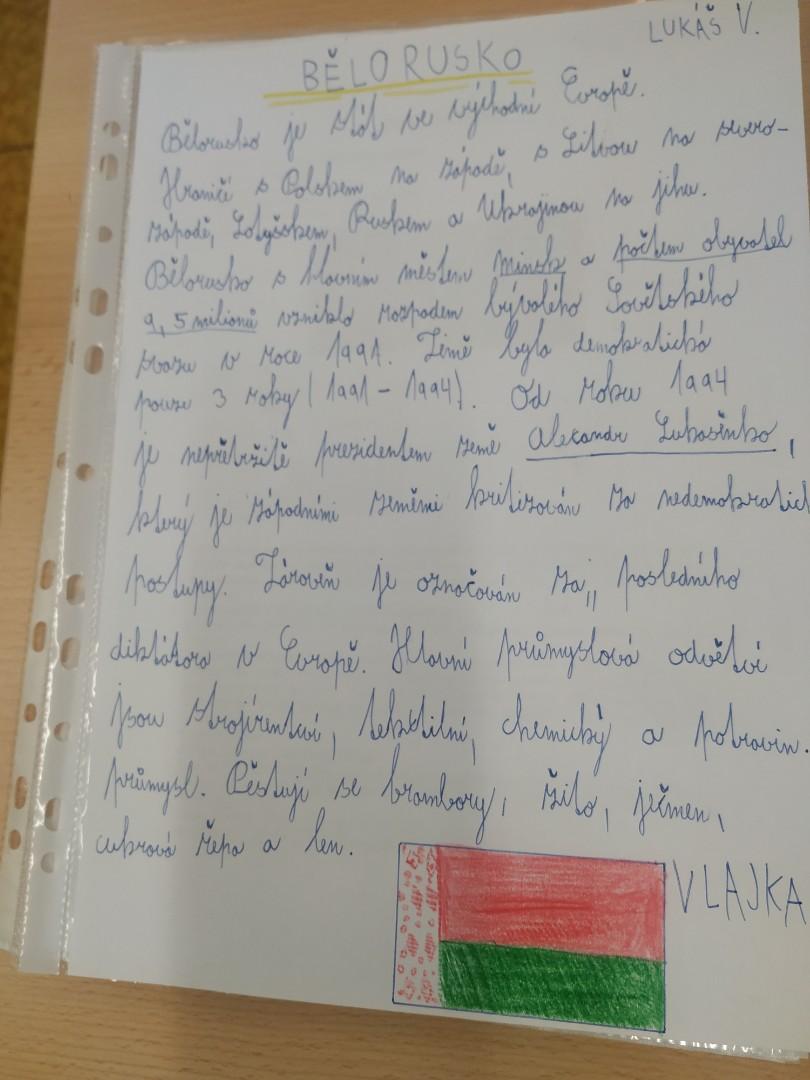 LUKÁŠ V.
BĚLORUSKO
Bělorusko je stát ve východní Evropě.
Hraničí s Polskem na západě, s Litvou na severo-
západě, Lotyšskem, Ruskem a Ukrajinou na jihu.
Bělorusko s hlavním městem Minsk a počtem obyvatel
9,5 milionů vzniklo rozpadem bývalého Sovětského
svazu v roce 1991. Země byla demokratická
pouze 3 roky (1991 - 1994). Od roku 1994
je nepřetržitě prezidentem země Alexandr Lukašenko,
který je západními zeměmi kritizován za nedemokratick
postupy. Zároveň je označován za „ posledního
diktátora v Evropě. Hlavní průmyslová odvětví
jsou strojírentví, tekstilní, chemický a potravin.
průmysl. Pěstují se brambory, žito, ječmen,
cukrová řepa a len.
VLAJKA